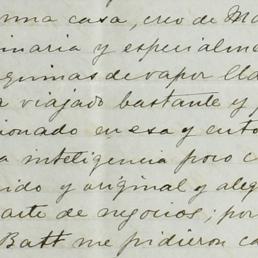 una casa, creo de Ma
inaria y especialme
quinas de vapor lla
viajado bastante y
cionado en esa y esto
a inteligencia poco c
ido y original y aleg
arte de negocios; por
Batt me pidieron ca